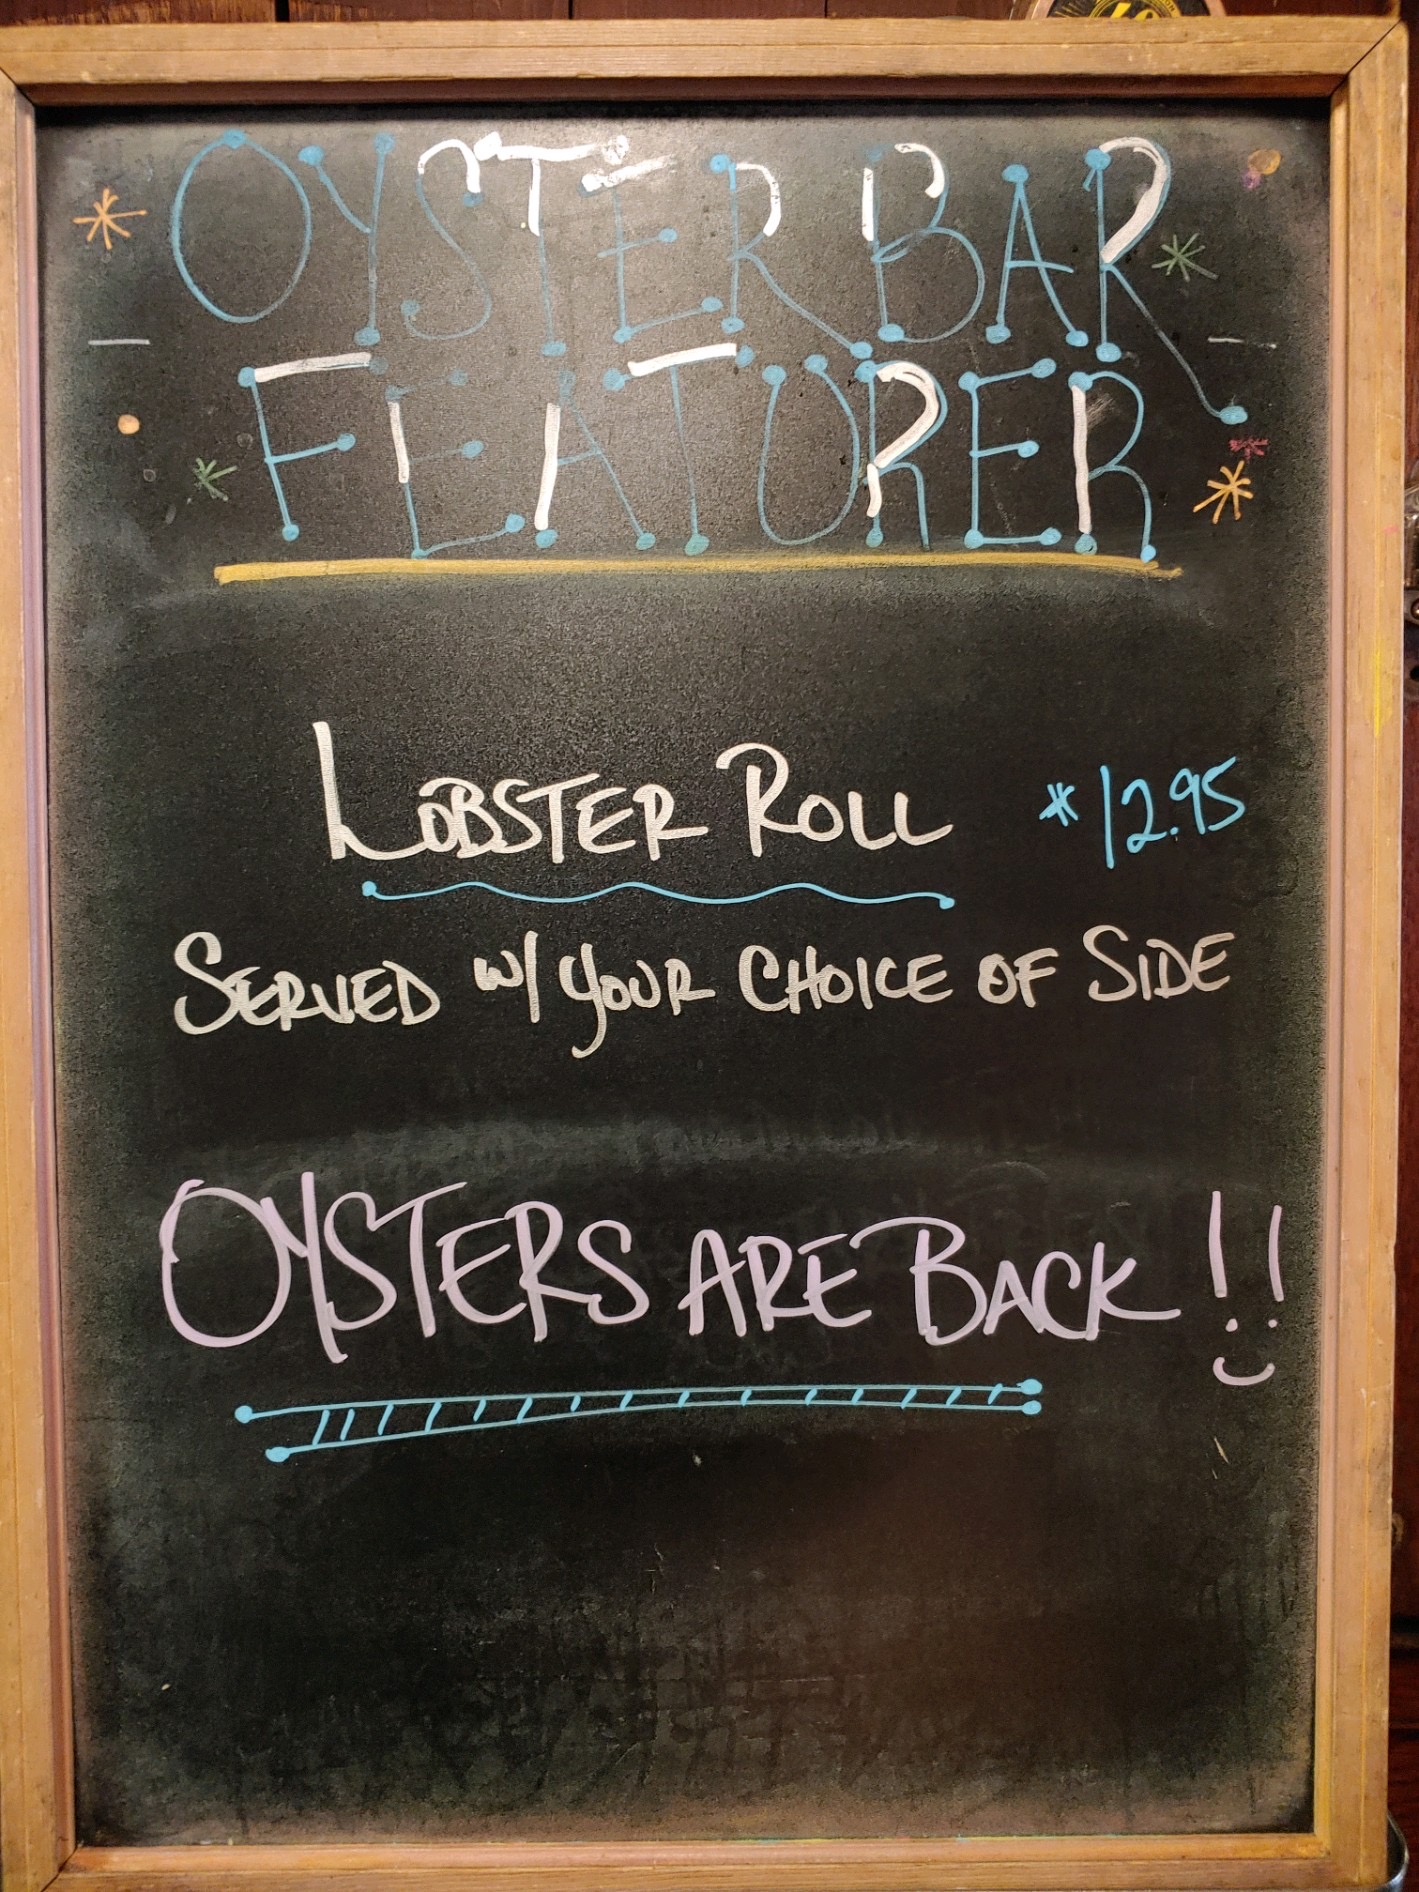 OYSTER BAR
FEATURER
LOBSTER ROLL *12.95
SERVED w/ YOUR CHOICE OF SIDE
OYSTERS ARE BACK !!